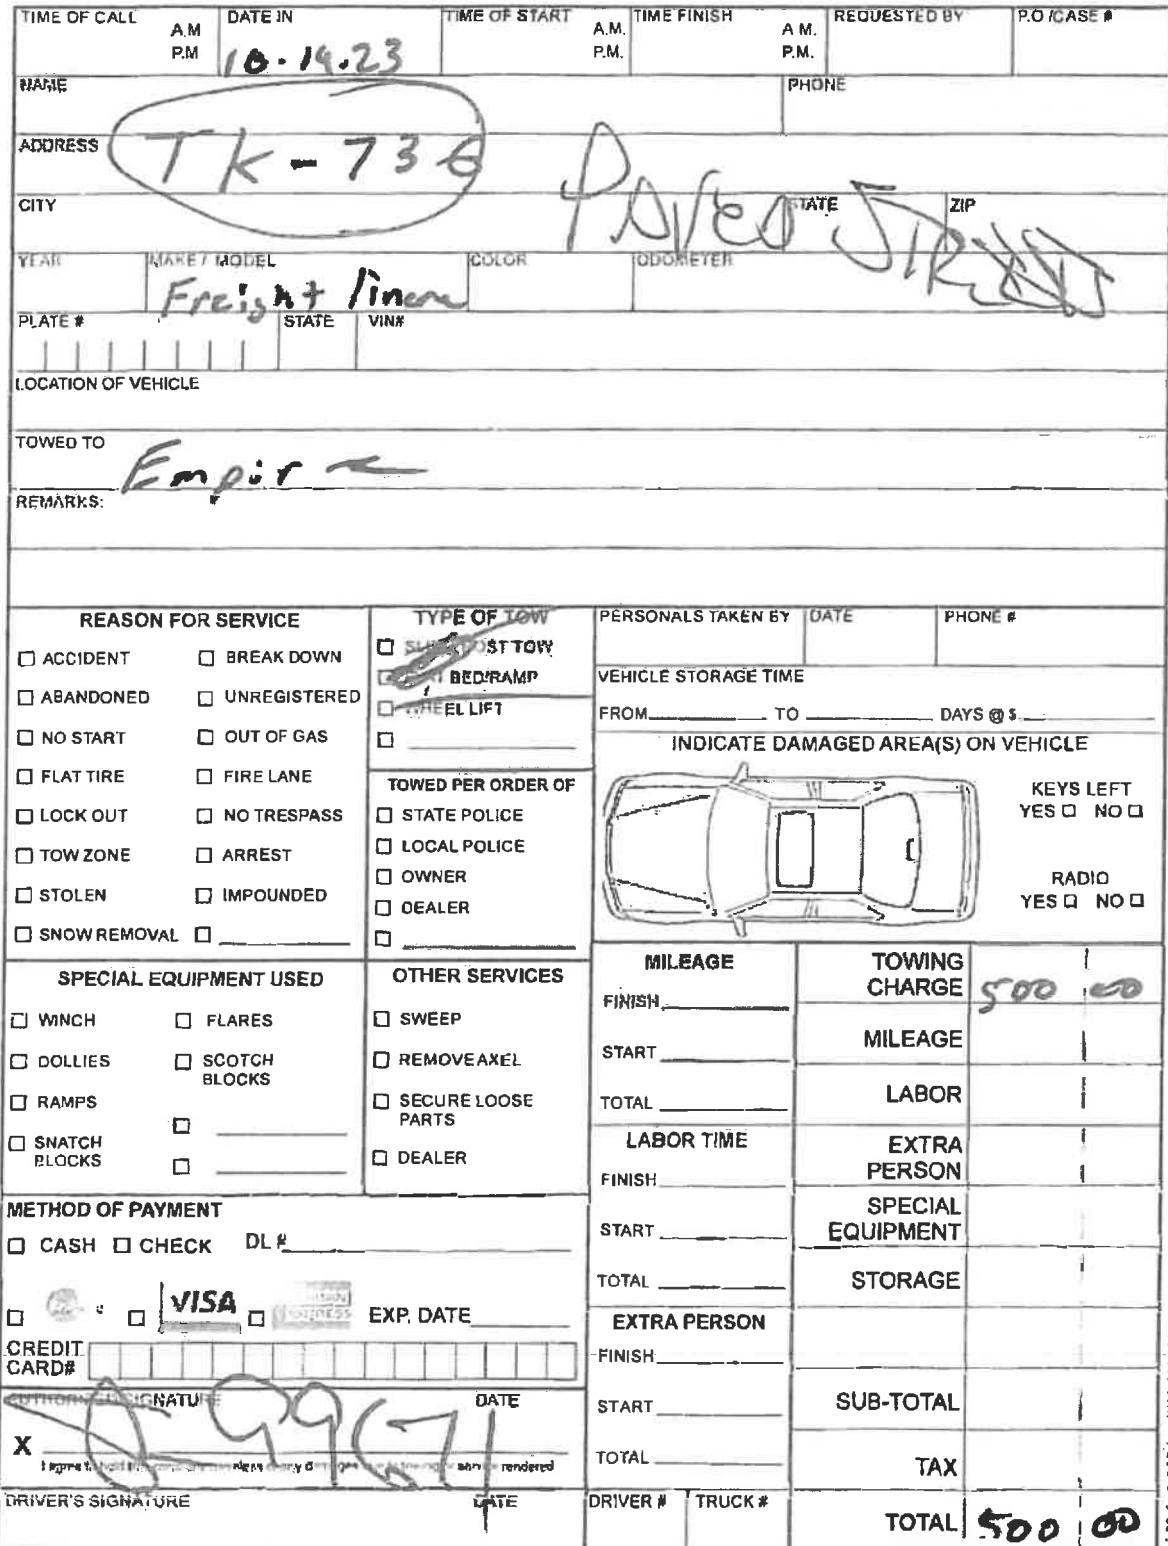 TIME OF CALL A.M P.M DATE IN 10.19.23 TIME OF START A.M. P.M. TIME FINISH A M. P.M. REQUESTED BY P.O /CASE #
NAME PHONE
ADDRESS TK-736
CITY STATE ZIP
YEAR MAKE / MODEL Freight liner COLOR ODOMETER
PLATE # STATE VIN#
LOCATION OF VEHICLE
TOWED TO Empire
REMARKS:
REASON FOR SERVICE
ACCIDENT BREAK DOWN
ABANDONED UNREGISTERED
NO START OUT OF GAS
FLAT TIRE FIRE LANE
LOCK OUT NO TRESPASS
TOW ZONE ARREST
STOLEN IMPOUNDED
SNOW REMOVAL
TYPE OF TOW
ST TOW
BED/RAMP
WHEEL LIFT
TOWED PER ORDER OF
STATE POLICE
LOCAL POLICE
OWNER
DEALER
PERSONALS TAKEN BY DATE PHONE #
VEHICLE STORAGE TIME
FROM TO DAYS @ $
INDICATE DAMAGED AREA(S) ON VEHICLE
KEYS LEFT
YES NO
RADIO
YES NO
SPECIAL EQUIPMENT USED
WINCH FLARES
DOLLIES SCOTCH BLOCKS
RAMPS
SNATCH BLOCKS
OTHER SERVICES
SWEEP
REMOVE AXEL
SECURE LOOSE PARTS
DEALER
MILEAGE
FINISH
START
TOTAL
LABOR TIME
FINISH
START
TOTAL
EXTRA PERSON
FINISH
START
TOTAL
TOWING CHARGE 500 00
MILEAGE
LABOR
EXTRA PERSON
SPECIAL EQUIPMENT
STORAGE
SUB-TOTAL
TAX
TOTAL 500 00
METHOD OF PAYMENT
CASH CHECK DL #
VISA EXP. DATE
CREDIT CARD#
SIGNATURE DATE
X
rendered
DRIVER'S SIGNATURE DATE DRIVER # TRUCK #